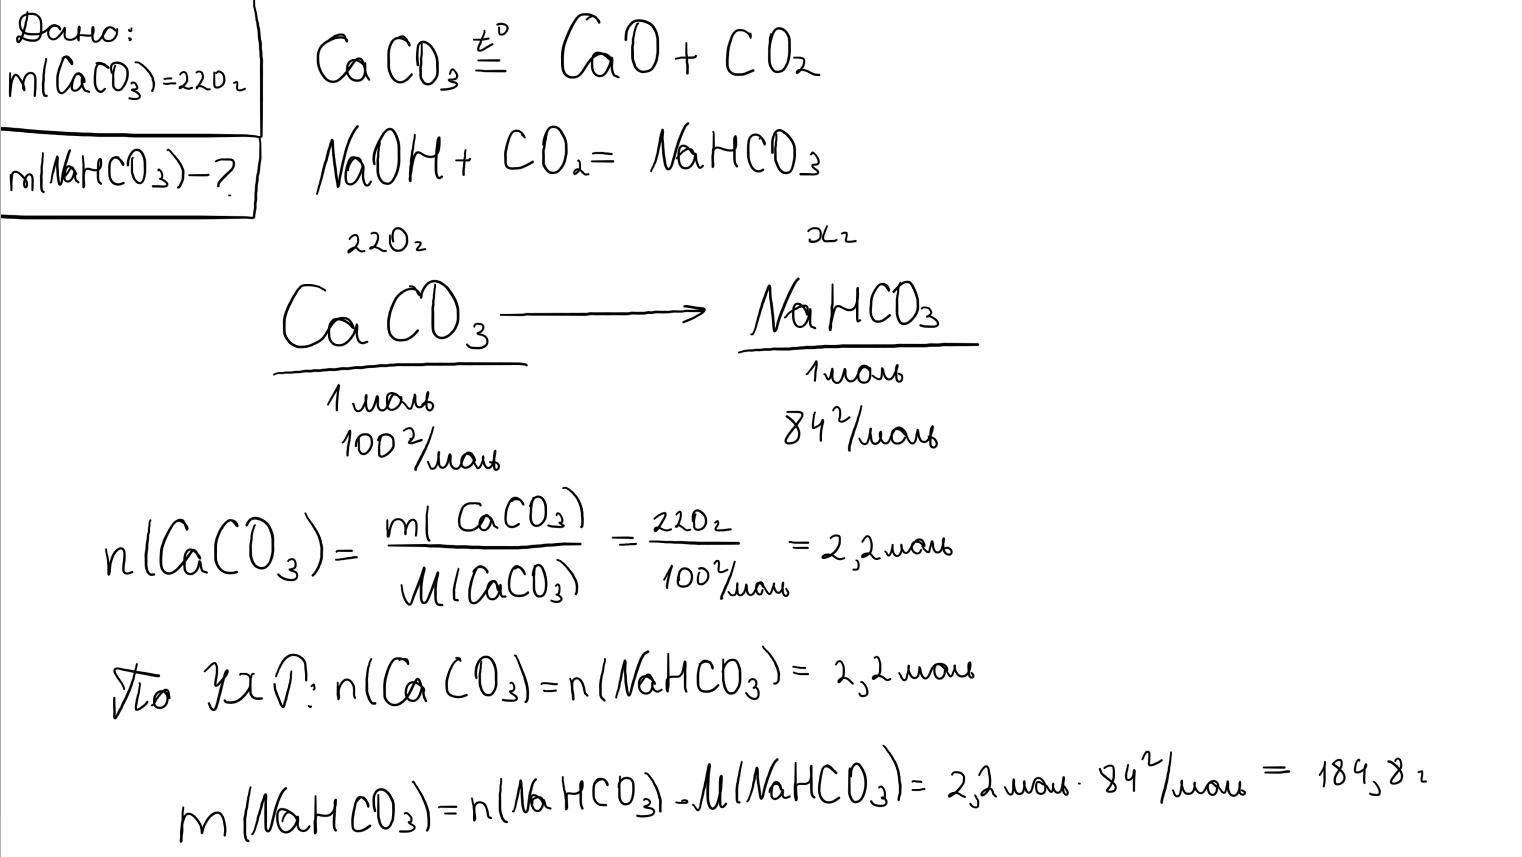 Дано:
m(CaCO₃)=220г
m(NaHCO₃)-?
CaCO₃ t⁰= CaO + CO₂
NaOH + CO₂ = NaHCO₃
220г xг
CaCO₃ → NaHCO₃
1 моль 1 моль
100 г/моль 84 г/моль
n(CaCO₃) = m(CaCO₃)/M(CaCO₃) = 220г/100 г/моль = 2,2 моль
По УХР: n(CaCO₃) = n(NaHCO₃) = 2,2 моль
m(NaHCO₃) = n(NaHCO₃) · M(NaHCO₃) = 2,2 моль · 84 г/моль = 184,8 г